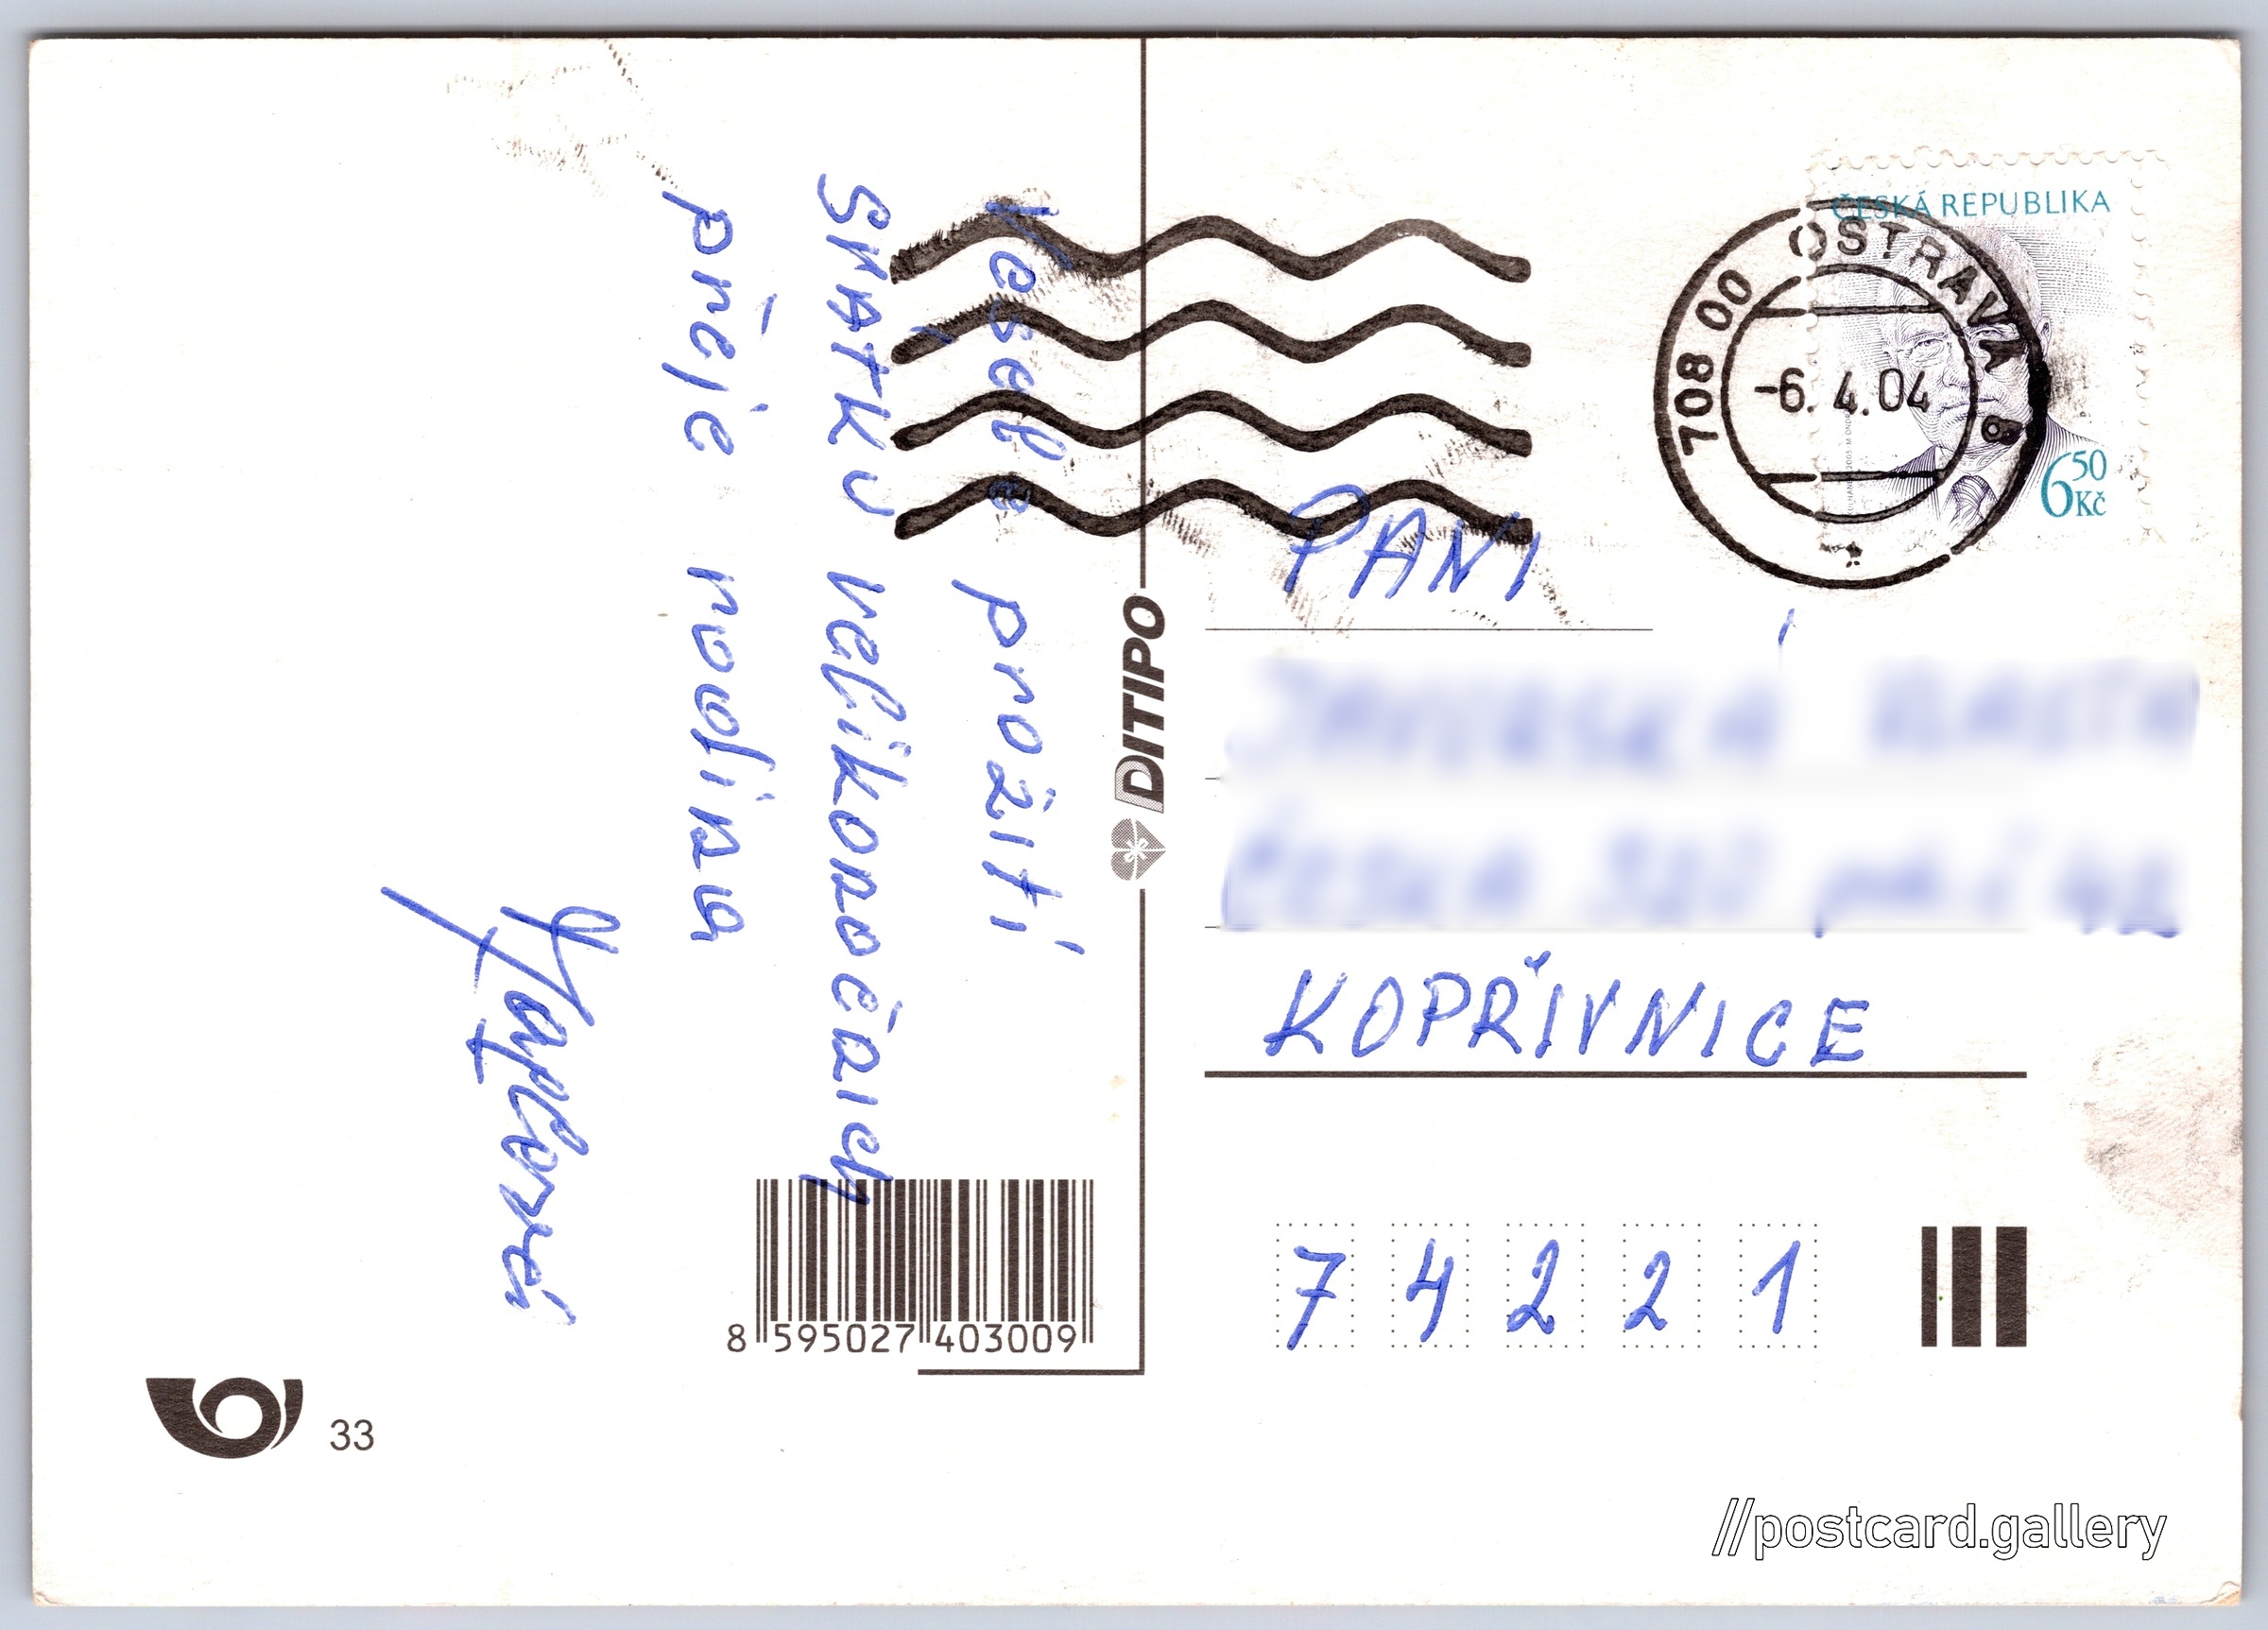 Veselé prožití
svátků velikonočních
přeje rodina
DITIPO
8 595027 403009
33
ČESKÁ REPUBLIKA
6 50 Kč
708 00 OSTRAVA 8
-6. 4.04
PANÍ
KOPŘIVNICE
7 4 2 2 1
//postcard.gallery